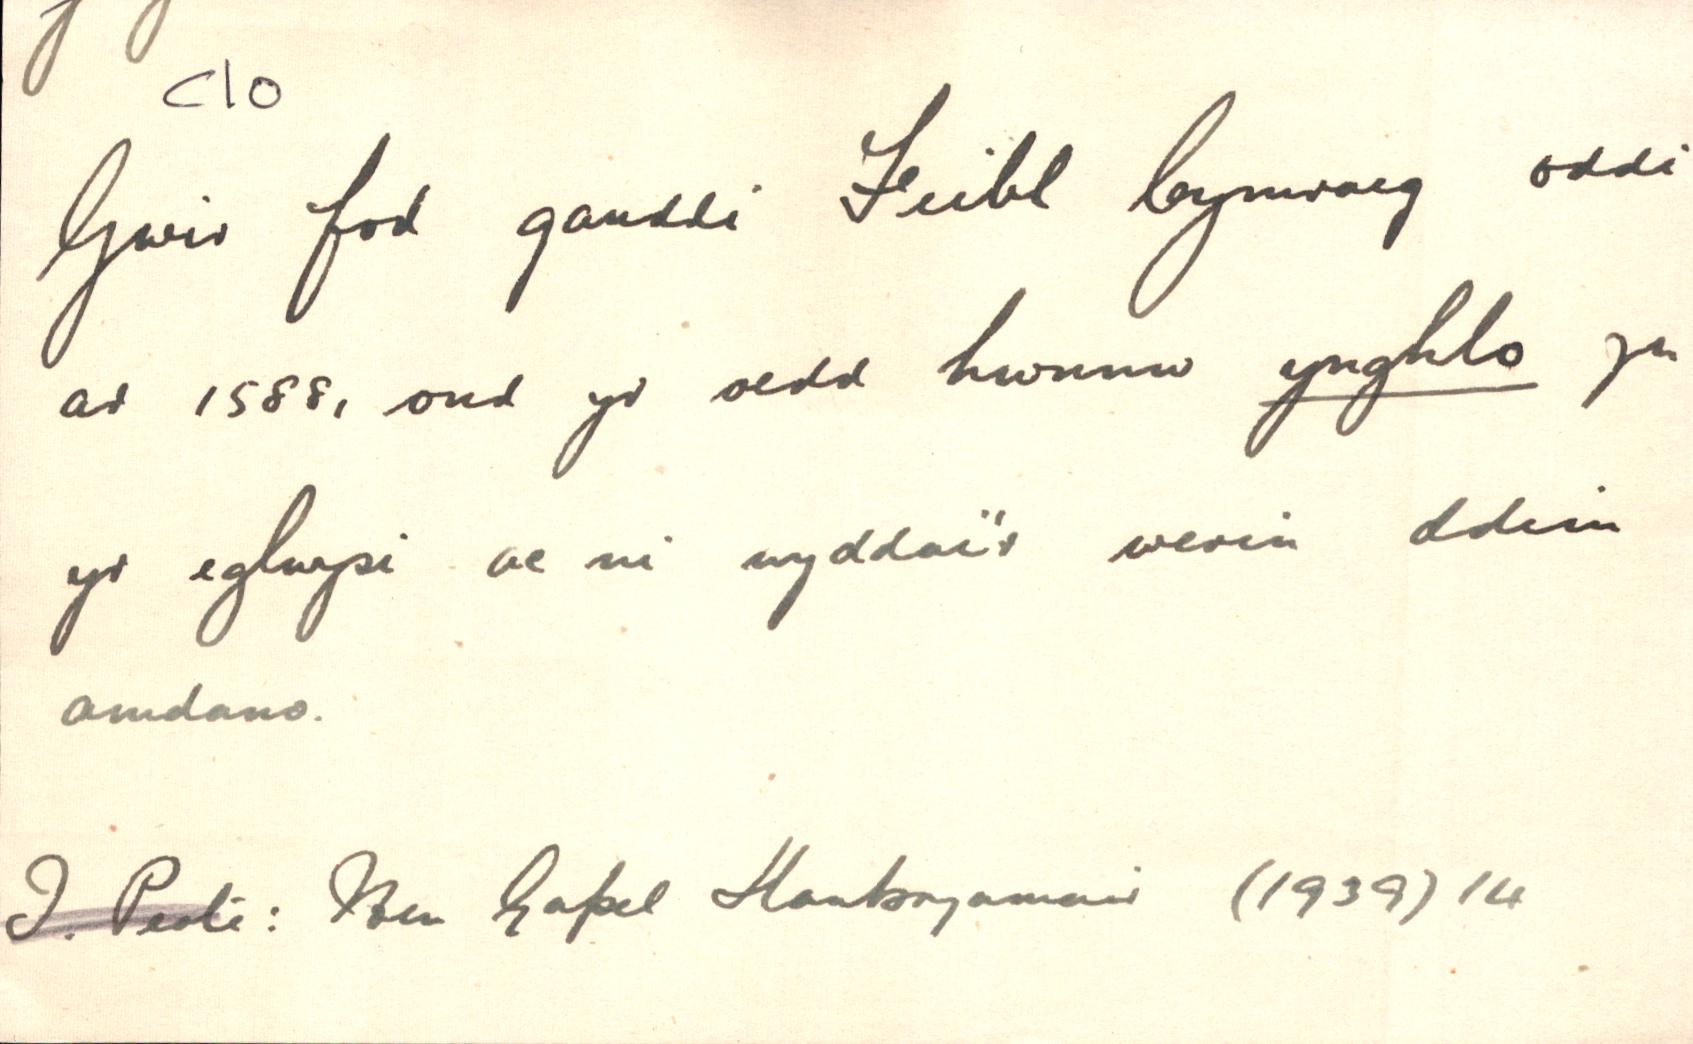 clo
Gwir fod ganddi Feibl Cymraeg oddi
ar 1588, ond yr oedd hwnnw ynghlo yn
yr eglwysi ac ni wyddai'r werin ddim
amdano.
I. Peate: Hen Gapel Llanbrynmair (1939) 14